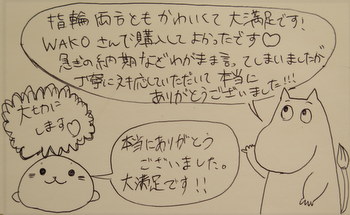 指輪両方ともかわいくて大満足です!
WAKOさんで購入してよかったです♡
急ぎの納期などわがまま言ってしまいましたが
丁寧に対応していただいて本当に
ありがとうございました!!!
大切に
します♡
本当にありがとう
ございました。
大満足です!!